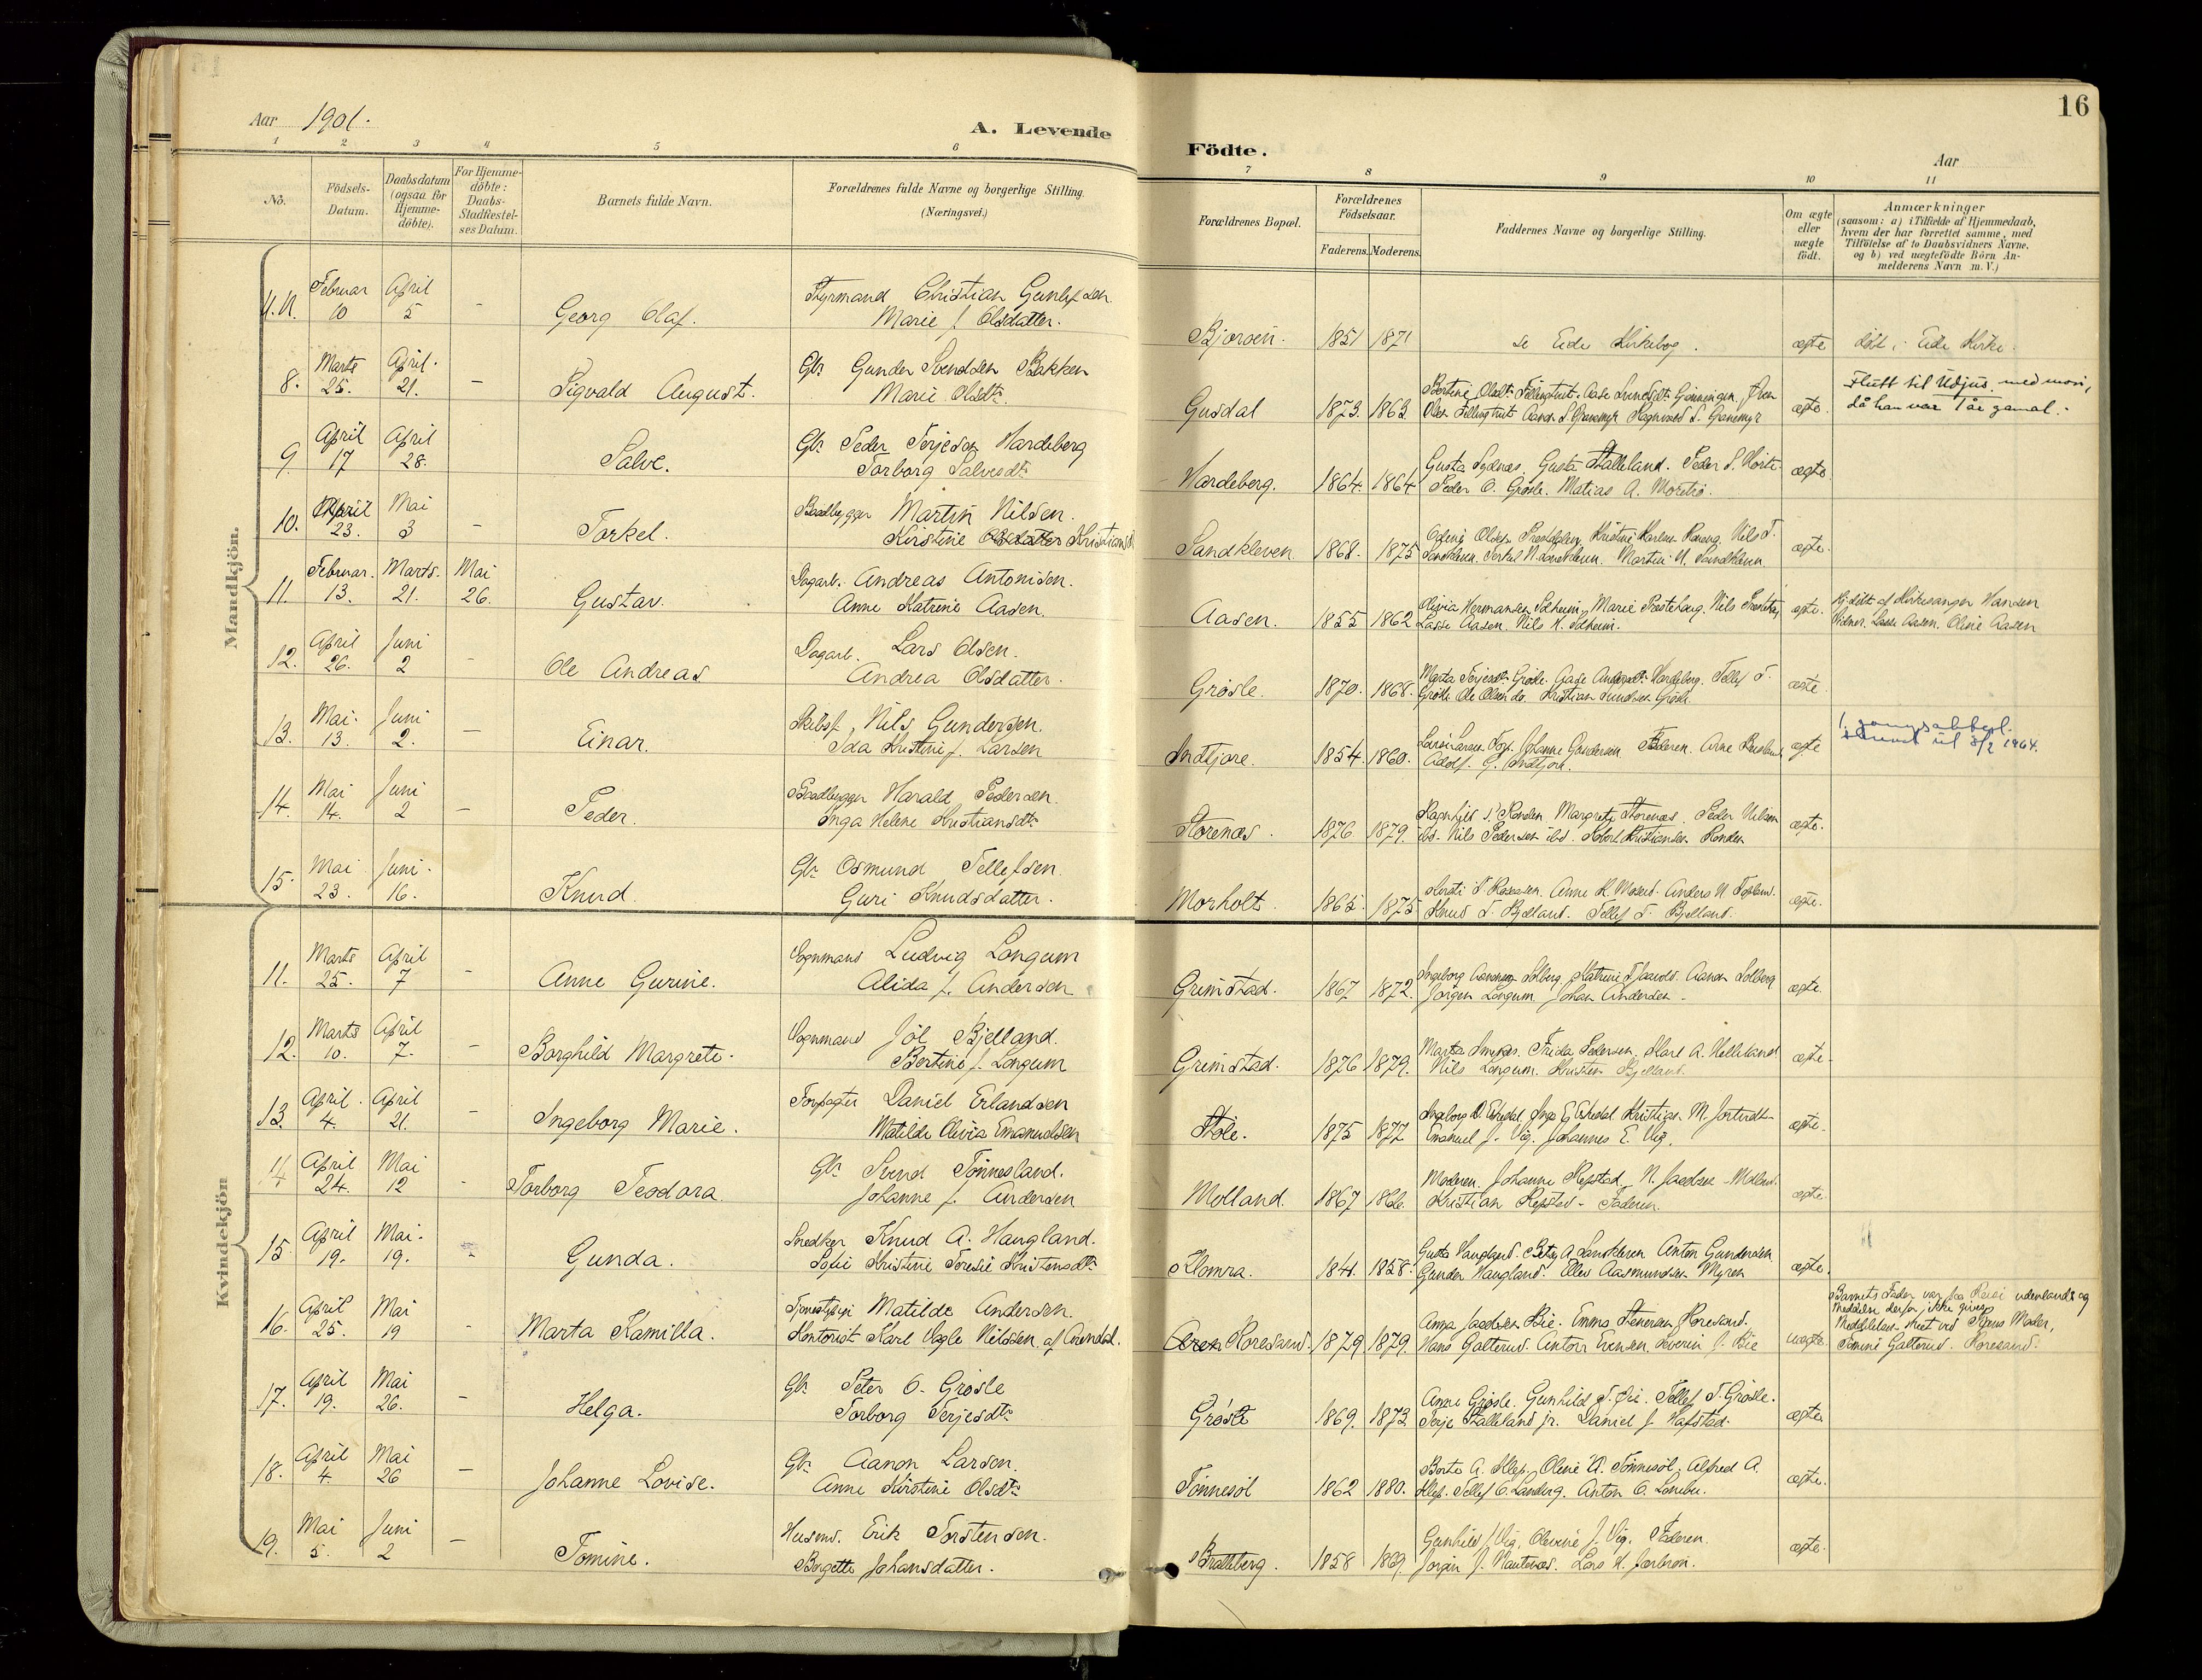 16
Aar 1901.
A. Levende
Födte.
Aar
1 2 3 4 5 6
7 8 9 10 11
No. Födsels-Datum. Daabsdatum (ogsaa for Hjemme-döbte). For Hjemme-döbte: Daabs-Stadfæstel-ses Datum. Barnets fulde Navn. Forældrenes fulde Navne og borgerlige Stilling. (Næringsvei.)
Forældrenes Bopæl. Forældrenes Födselsaar. Faderens. Moderens. Faddernes Navne og borgerlige Stilling. Om ægte eller uægte födt. Anmærkninger (saasom: a) i Tilfælde af Hjemmedaab, hvem der har forrettet samme, med Tilföielse af to Daabsvidners Navne, og b) ved uægtefödte Börn An-melderens Navn m. V.)
Mandkjön.
U.N. Februar 10 April 5 - Georg Olaf. Styrmand Christian Gunlefsen
Marie f. Olsdatter.
Bjoroen. 1851 1871 se Eide Kirkebog. ægte döbt i Eide Kirke.
8. Marts 25. April 21. - Sigvald August. Gbr Gunder Svendsen Bakken
Marie Olsdtr
Gusdal 1873. 1863. ægte. Flutt til Udjus med mori,
då han var 1 år gamal.
9. April 17 April 28. Salve. Gbr Peder Terjesen Hardeberg
Torborg Salvesdtr
Hardeberg. 1864. 1864 Gusta Sydnæs. Gusta Stalleland. Peder S.
Peder O. Grøsle. Matias A. ægte
10. April 23. Mai 3 - Torkel. Baadbygger Martin Nilsen.
Kirstine
Sandkleven 1868. 1875 Nils T.
Sandkleven. Torkel N. Sandkleven. Martin N. Sandkleven. ægte.
11. Februar. 13. Marts. 21. Mai 26. Gustav. Dagarb. Andreas Antonisen.
Anne Katrine Aasen.
Aasen. 1855 1862 Olivia Hermansen Solheim, Marie Prestehaug. Nils
Lasse Aasen. Nils H. Solheim. ægte. Hj.döbt af Kirkesanger Hansen
Vidner. Lasse Aasen. Oline Aasen
12. April 26. Juni 2 - Ole Andreas Dagarb. Lars Olsen.
Andrea Olsdatter.
Grøsle. 1870. 1868. Marta Terjesdtr Grøsle. Aase Hardeberg. Tellef T.
Grøsle Ole Olsen do. Kristian Gundersen Grøsle. ægte
13. Mai. 13. Juni 2. - Einar. Skibsf. Nils Gundersen.
Ida Kristine f. Larsen
Indtjore. 1854. 1860. Johanne Gundersen Faderen. Arne
Adolf G. Indtjore. ægte 1. gangsattest.
utl 8/2 1964.
14. Mai 14. Juni 2 - Peder. Baadbygger Harald Pedersen.
Inga Helene Kristiansdtr
Storenæs. 1876. 1879. Ragnhild Margrete Storenæs. Peder Nilsen
ibd. Nils Pedersen ibd. Kristiansen ægte.
15. Mai 23. Juni. 16. Knud. Gbr Osmund Tellefsen.
Guri Knudsdatter.
Morholt. 1865. 1875
Knud T. Bjelland. Tellef T. Bjelland. ægte.
Kvindekjön
11. Marts 25. April 7 - Anne Gurine. Vognmand Ludvig Longum
Alida f. Andersen
Grimstad. 1867 1872. Ingeborg Aanonsen Solberg. Aanon Solberg
Jørgen Longum Johan Andersen. ægte.
12. Marts 10. April 7. - Borghild Margrete. Vognmand Jöl Bjelland.
Bertine f. Longum
Grimstad. 1876 1879. Frida Pedersen. Karl A.
Nils Longum. Kristen Bjelland. ægte.
13. April. 4. April 21. - Ingeborg Marie. Daniel Erlandsen
Matilde Olivia Emanuelsen
Støle. 1875 1877 Kristian M.
Emanuel J. Vig. Johannes E. Vig. ægte.
14 April 24. Mai 12 - Torborg Teodora. Gbr Svend Tønnesland.
Johanne f. Andersen
Molland. 1867 1866. Moderen. Johanne Repstad. N. Jacobsen Molland.
Kristian Repstad. Faderen. ægte.
15 April 19. Mai. 19. - Gunda. Snedker Knud A. Haugland.
Sofie Kristine Teresie Kristensdtr
Klomra. 1841. 1858. Gusta Haugland. Anton Gundersen
Gunder Haugland. Ellev Aasmundsen Myren ægte.
16. April 25. Mai 19 - Marta Kamilla. Tjenestepige Matilde Andersen.
Kontorist Karl Vagle Nilssen af Arendal.
Roresand. 1879 1879. Anna Jacobsen Bie. Emma Roresand.
Hans Galterud. Severin J. Bie uægte. Barnets Fader var paa Reise udenlands og
Meddelse derfor ikke givet.
Meddelelse skeet ved Pigens Moder,
Tomine Galterud. Roresand.
17. April 19. Mai 26. - Helga. Gbr Peter O. Grøsle
Torborg Terjesdtr
Grøsle 1869. 1873. Anne Grøsle. Gunhild T. Tellef T. Grøsle.
Terje Stalleland jr. Daniel J. Hafstad. ægte
18. April 4. Mai 26 - Johanne Lovise. Gbr Aanon Larsen.
Anne Kirstine Olsdtr
Tønnesøl 1862 1880. Berte A. Klep. Oline A. Tønnesøl. Alfred A.
Klep. Tellef O. Landvig. Anton O. ægte.
19. Mai 5. Juni 2 - Tomine. Husmd. Erik Torstensen.
Borgette Johansdatter.
Bratteberg. 1858 1869. Gunhild J. Vig. J. Vig. Faderen.
Jørgen J. Lars H. ægte.